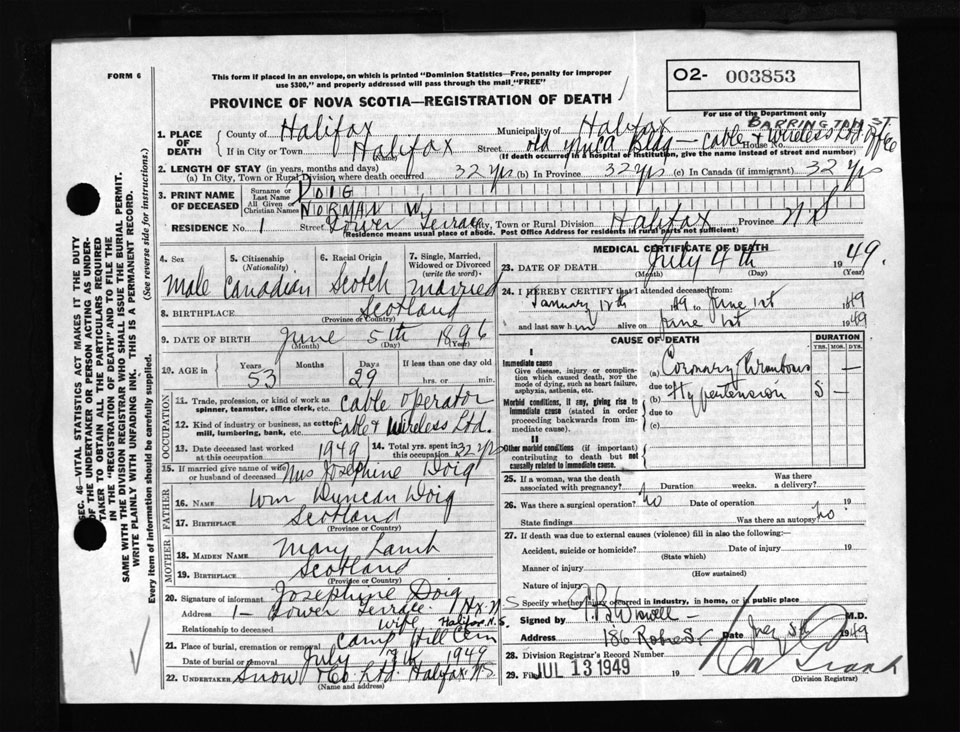 FORM 6
This form if placed in an envelope, on which is printed "Dominion Statistics—Free, penalty for improper
use $300," and properly addressed will pass through the mail "FREE"
PROVINCE OF NOVA SCOTIA—REGISTRATION OF DEATH
O2- 003853
For use of the Department only
BARRINGTON ST.
1. PLACE OF DEATH
County of Halifax Municipality of Halifax
If in City or Town Halifax Street old YMCA Bldg — Cable & Wireless Ltd Office House No.
(Name) (If death occurred in a hospital or institution, give the name instead of street and number)
2. LENGTH OF STAY (in years, months and days)
(a) In City, Town or Rural Division where death occurred 32 yrs (b) In Province 32 yrs (c) In Canada (if immigrant) 32 yrs
3. PRINT NAME OF DECEASED
Surname or Last Name DOIG
All Given or Christian Names NORMAN W.
RESIDENCE No. 1 Street Tower Terrace City, Town or Rural Division Halifax Province NS
(Residence means usual place of abode. Post Office Address for residents in rural parts not sufficient)
4. Sex 5. Citizenship (Nationality) 6. Racial Origin 7. Single, Married, Widowed or Divorced (write the word)
Male Canadian Scotch married
8. BIRTHPLACE Scotland
(Province or Country)
9. DATE OF BIRTH June 5th 1896
(Month) (Day) (Year)
10. AGE in Years Months Days If less than one day old
53 29 hrs. or min.
OCCUPATION
11. Trade, profession, or kind of work as spinner, teamster, office clerk, etc. Cable operator
12. Kind of industry or business, as cotton mill, lumbering, bank, etc. Cable & Wireless Ltd.
13. Date deceased last worked at this occupation 1949 14. Total yrs. spent in this occupation 32 yrs
15. If married give name of wife or husband of deceased Mrs Josephine Doig
FATHER
16. NAME Wm Duncan Doig
17. BIRTHPLACE Scotland
(Province or Country)
MOTHER
18. MAIDEN NAME Mary Lamb
19. BIRTHPLACE Scotland
(Province or Country)
20. Signature of informant Josephine Doig
Address 1 — Tower Terrace. Hx. N S
Relationship to deceased wife Halifax N.S.
21. Place of burial, cremation or removal Camp Hill Cem
Date of burial or removal July 7th 1949
22. UNDERTAKER Snow & Co. Ltd. Halifax NS
(Name and address)
MEDICAL CERTIFICATE OF DEATH
23. DATE OF DEATH July 4th 1949.
(Month) (Day) (Year)
24. I HEREBY CERTIFY that I attended deceased from:
January 12th 1949 to June 1st 1949
and last saw him alive on June 1st 1949
CAUSE OF DEATH DURATION
YRS. MOS. DYS.
I
Immediate cause
Give disease, injury or complication which caused death, Not the mode of dying, such as heart failure, asphyxia, asthenia, etc.
(a) Coronary Thrombosis —
due to
Morbid conditions, if any, giving rise to immediate cause (stated in order proceeding backwards from immediate cause).
(b) Hypertension 5 —
due to
(c)
II
Other morbid conditions (if important) contributing to death but not causally related to immediate cause.
25. If a woman, was the death associated with pregnancy? Duration weeks. Was there a delivery?
26. Was there a surgical operation? no Date of operation 19
State findings Was there an autopsy? no
27. If death was due to external causes (violence) fill in also the following:
Accident, suicide or homicide? Date of injury 19
(State which)
Manner of injury
(How sustained)
Nature of injury
Specify whether injury occurred in industry, in home, or in public place
Signed by M.D.
Address 186 Robie St Date 1949
28. Division Registrar's Record Number
29. Filed JUL 13 1949 19
(Division Registrar)
SEC. 46—VITAL STATISTICS ACT MAKES IT THE DUTY
OF THE UNDERTAKER OR PERSON ACTING AS UNDER-
TAKER TO OBTAIN ALL THE PARTICULARS REQUIRED
IN THE "REGISTRATION OF DEATH" AND TO FILE THE
SAME WITH THE DIVISION REGISTRAR WHO SHALL ISSUE THE BURIAL PERMIT.
WRITE PLAINLY WITH UNFADING INK. THIS IS A PERMANENT RECORD.
Every item of information should be carefully supplied. (See reverse side for instructions.)